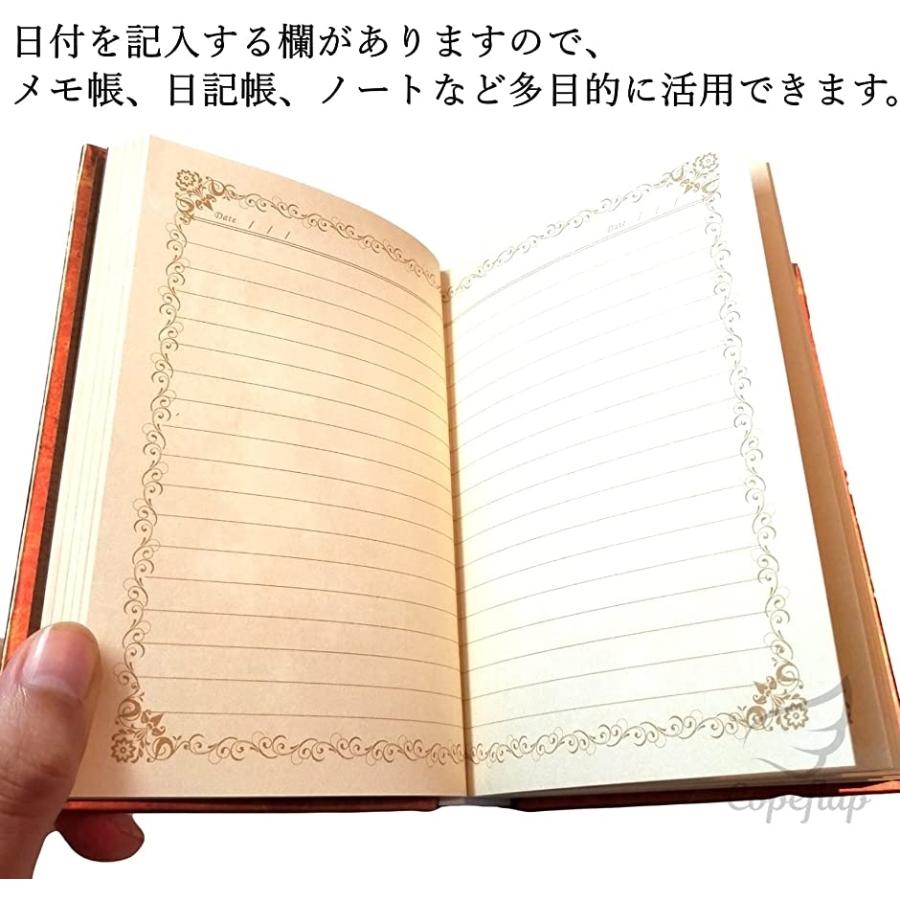 日付を記入する欄がありますので、
メモ帳、日記帳、ノートなど多目的に活用できます。
Date / / /
Date / / /
Copeflap